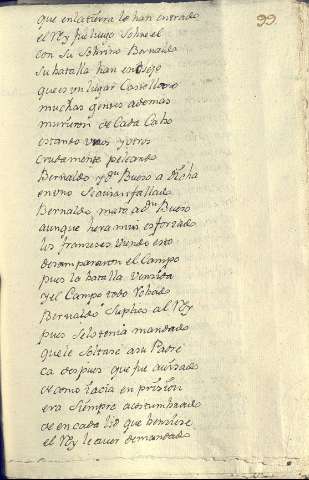 99
que en la tierra le han entrado
el Rey fue luego sobre el
con su sobrino Bernaldo
su batalla han
que es un lugar Castellano
muchas gentes ademas
murieron de cada cabo
estando unos y otros
crudamente peleando
Bernaldo y dn Bueso
en uno se avian fallado
Bernaldo mato a dn Bueso
aunque hera mui esforzado
los franceses viendo esto
desampararon el Campo
pues la batalla vencida
y el Campo todo Robado
Bernaldo suplico al Rey
pues selo tenia mandado
que le soltase a su Padre
ca despues que fue avisado
de como hacia en prision
era siempre acostumbrado
de en cada lid que hoviese
el Rey le aver demandado